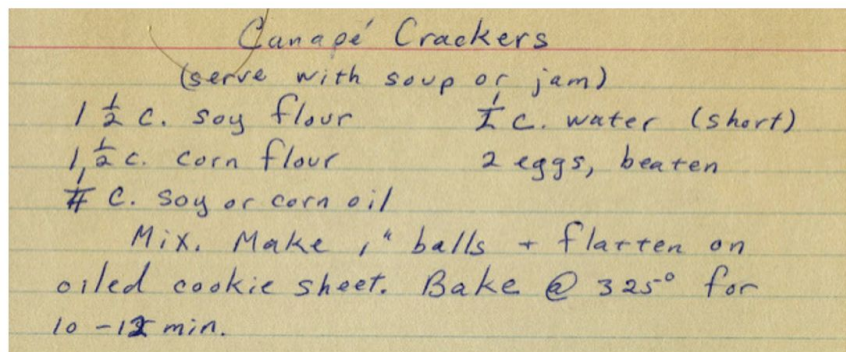 Canapé Crackers
(serve with soup or jam)
1 1/2 c. soy flour
1 1/2 c. corn flour
1/4 c. soy or corn oil
c. water (short)
2 eggs, beaten
Mix. Make 1" balls + flatten on
oiled cookie sheet. Bake @ 325° for
10-12 min.